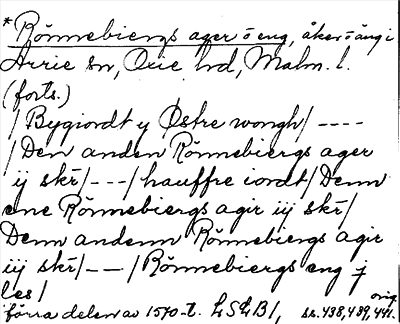 * Rönnebiergs ager o eng, åker o äng i
Arrie sn, Oxie hd, Malm. l.
(forts.)
/Bygiordt y Østre wongh/ ----
/Den anden Rönnebiergs ager
ij skr/---/hauffre iordt/Denn
ene Rönnebiergs agir iij skr/
Denn andenn Rönnebiergs agir
iij skr/---/Rönnebiergs eng j
les/
förra delen av 1570-t. LSLB1, orig. ss. 438, 439, 441.